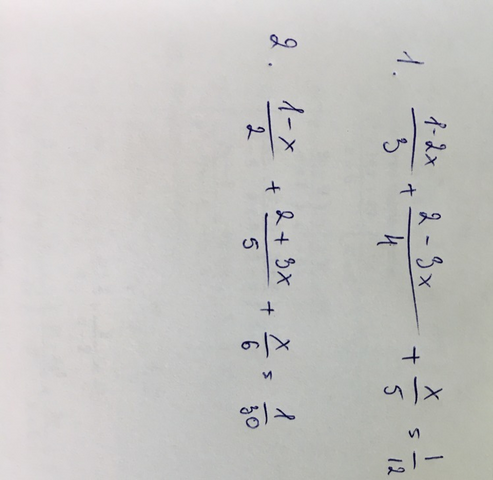 1. (1-2x)/3 + (2-3x)/4 + x/5 = 1/12
2. (1-x)/2 + (2+3x)/5 + x/6 = 1/30